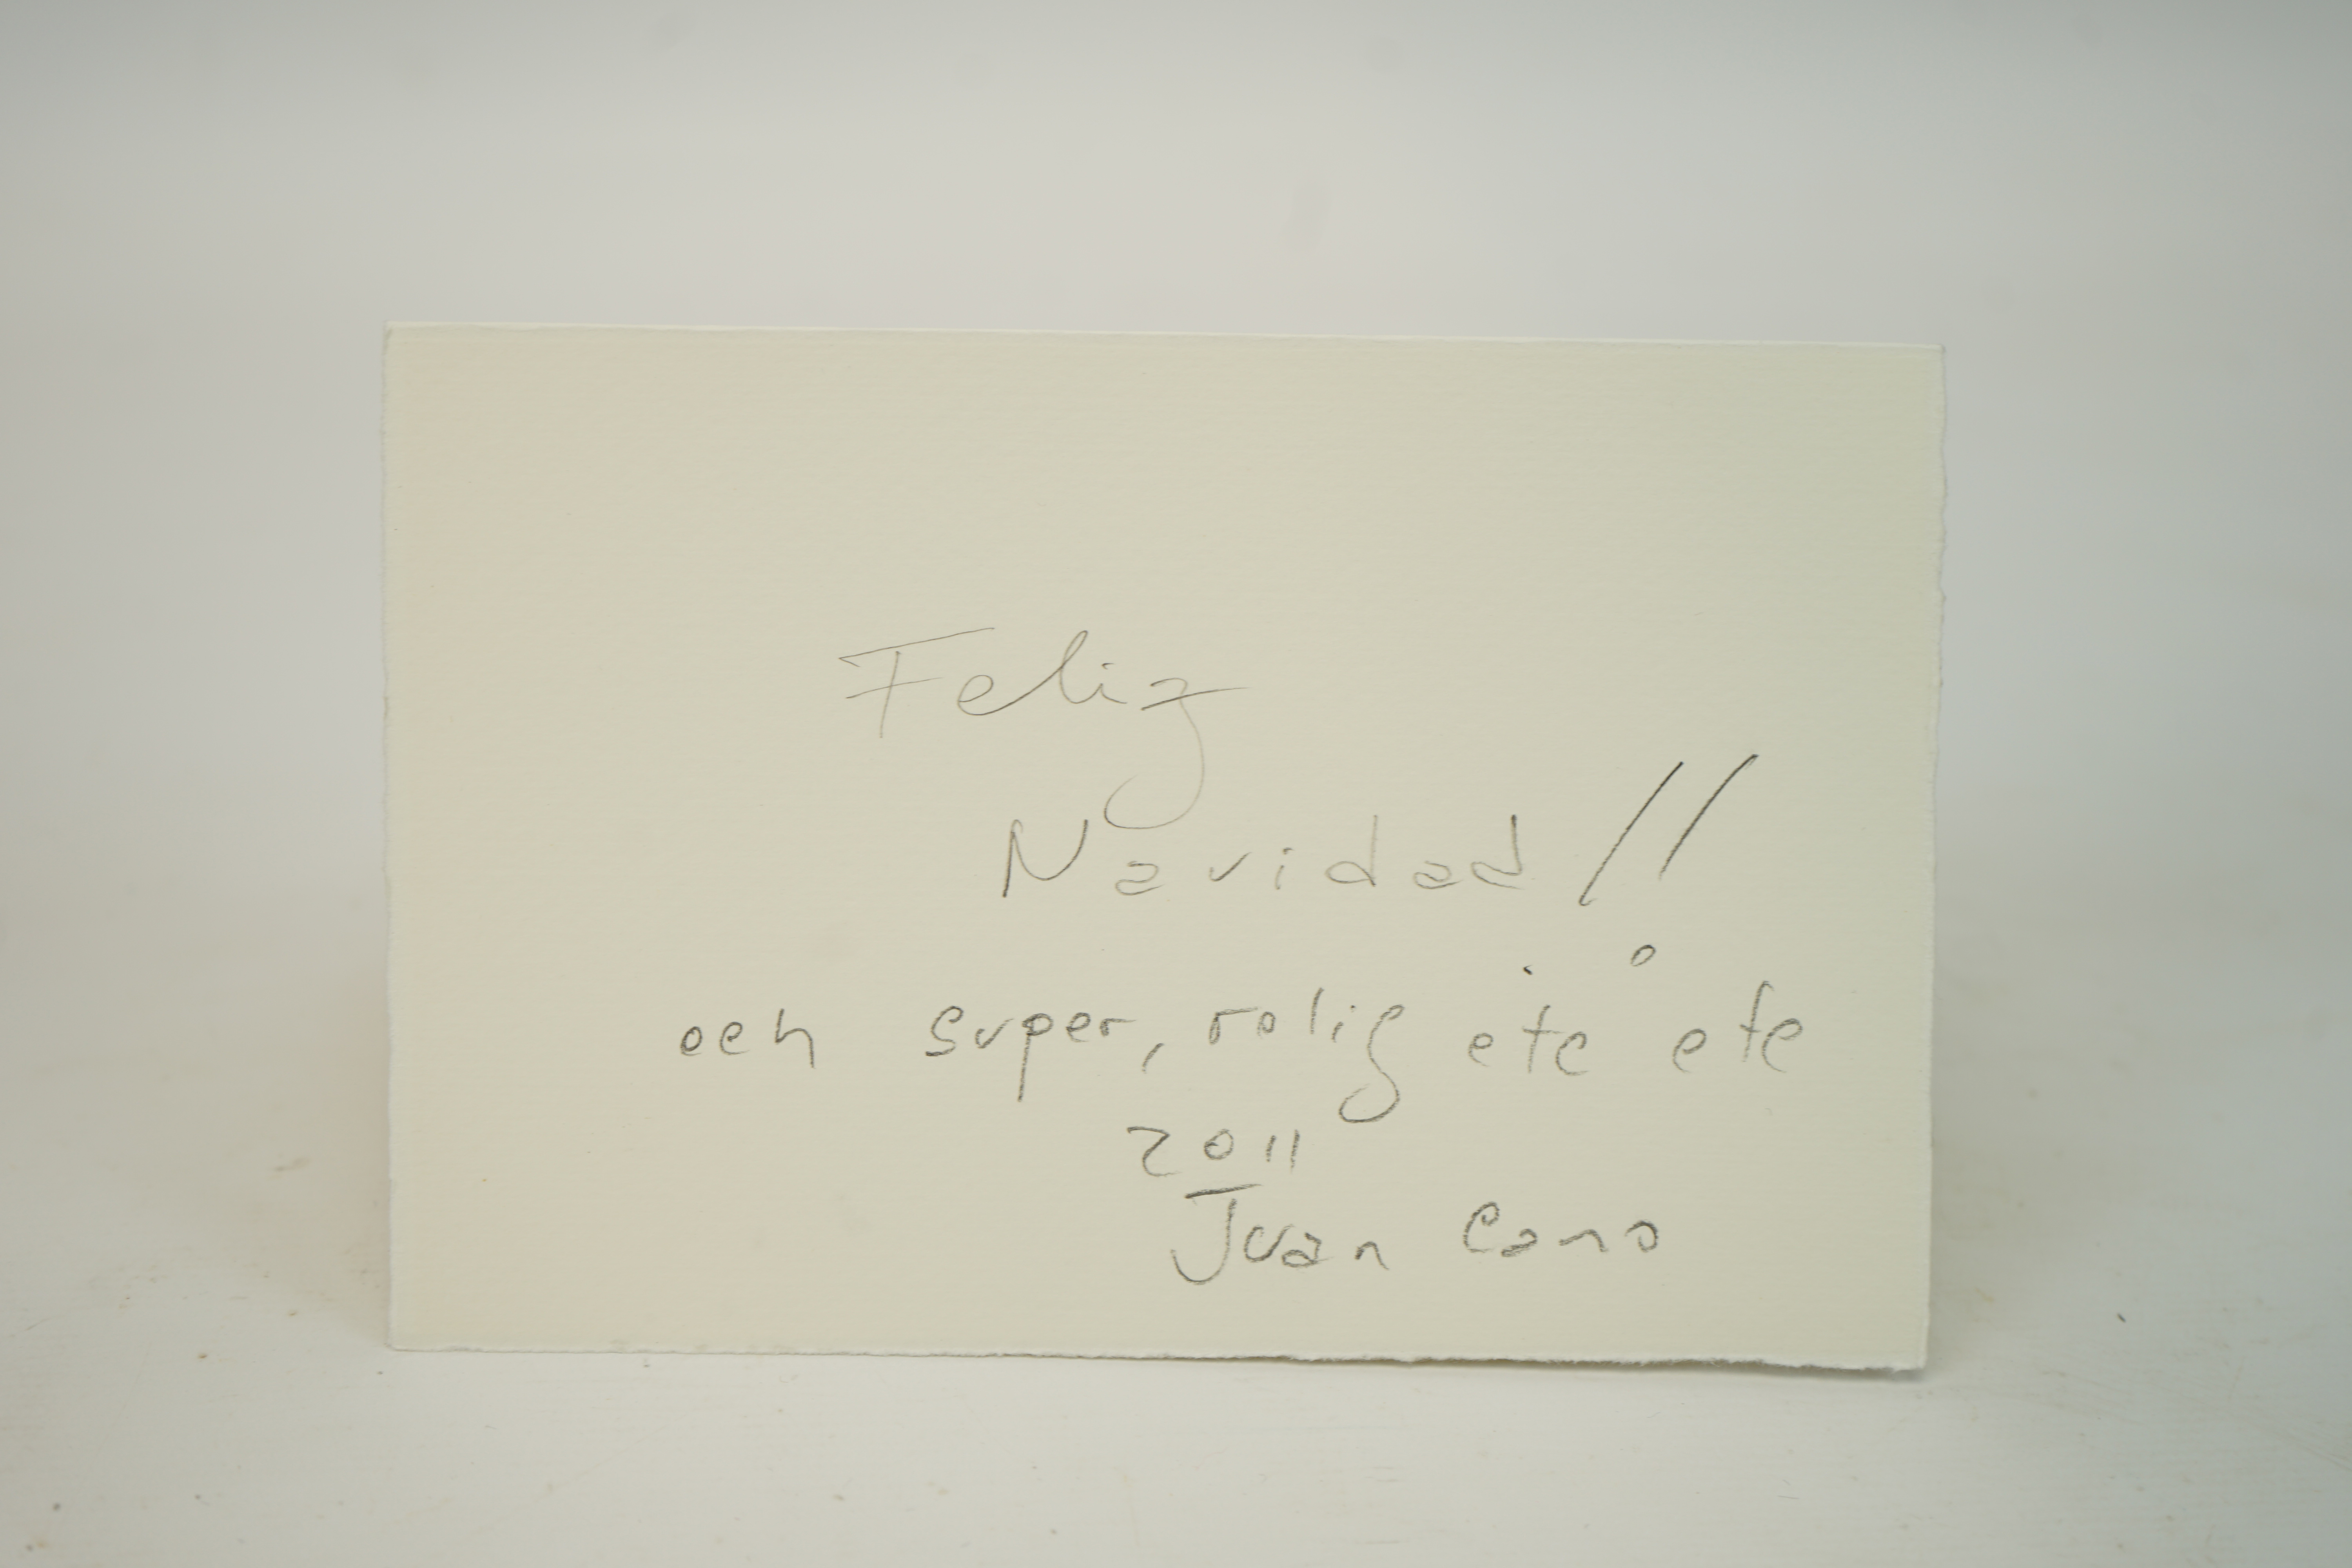 Feliz
Navidad!!
och super, rolig etc etc
2011
Juan Cano